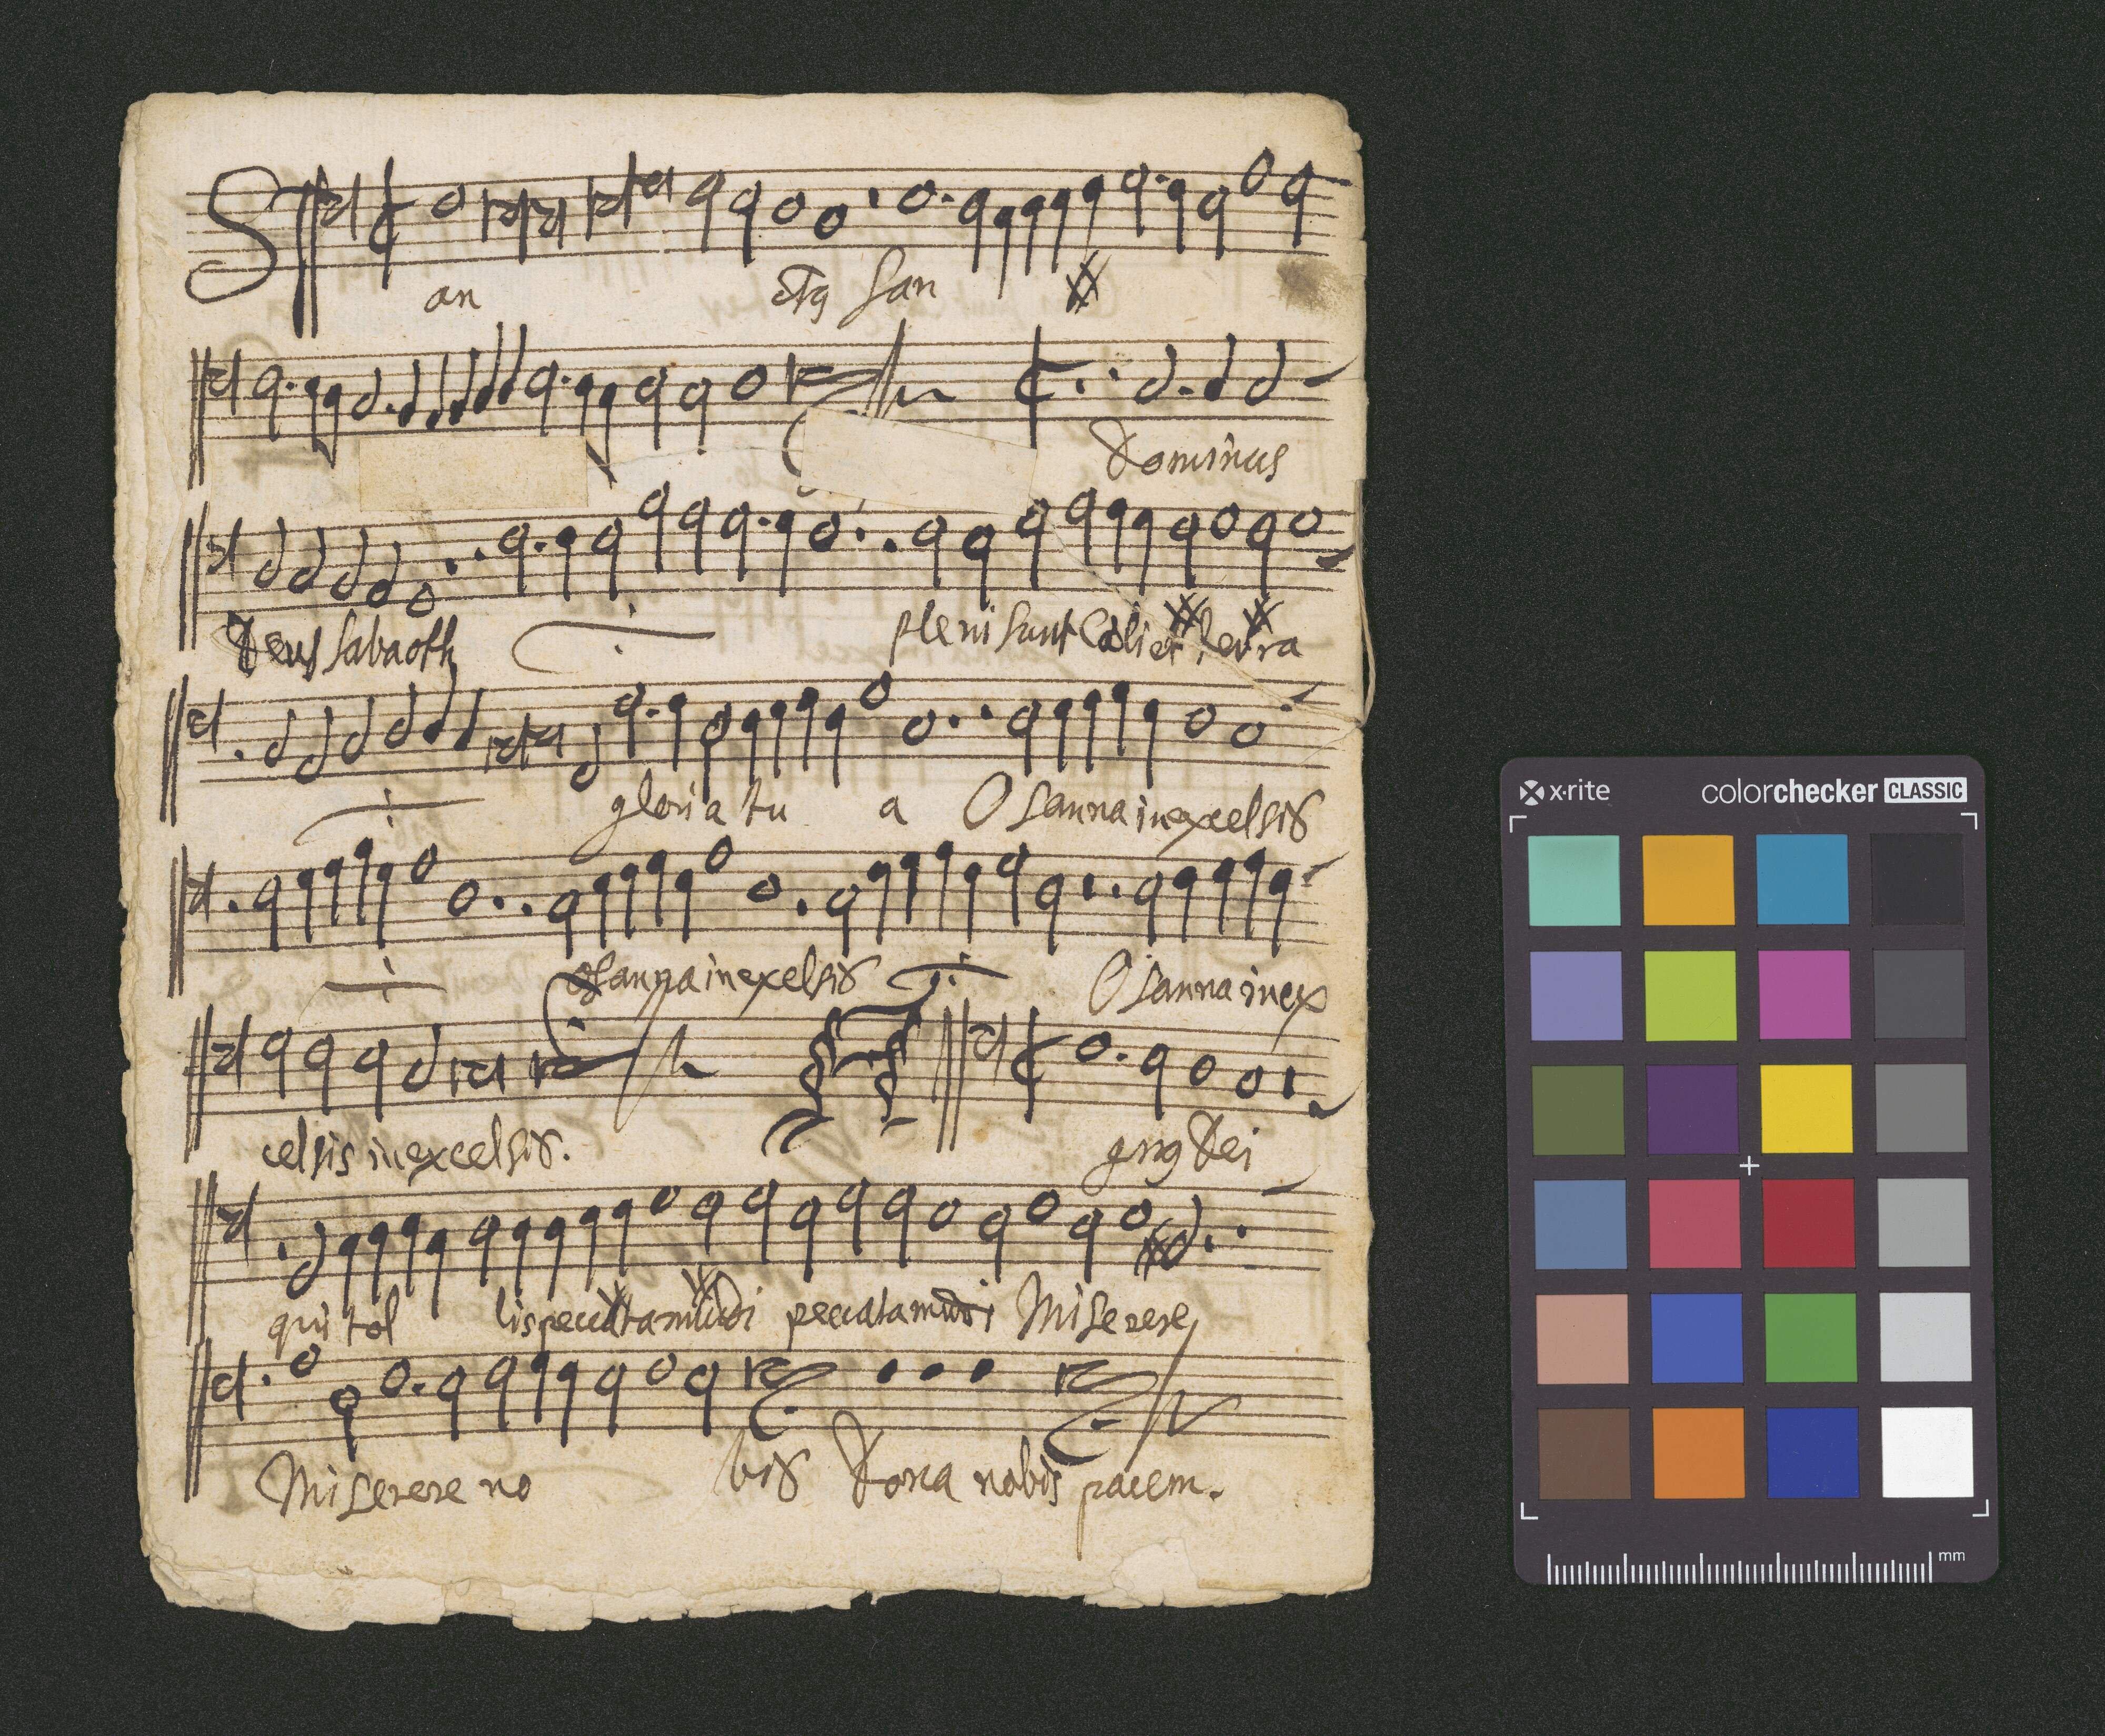 San ctꝰ San
Dominus
Deus Sabaoth ij pleni sunt Cæli et terra
ij gloria tu a Osanna in excelsis
ij osanna in excelsis ij Osanna in ex
celsis in excelsis. A gnꝰ Dei
qui tol lis peccata mũdi peccata mũdi Miserere
Miserere no bis Dona nobis pacem.
x-rite colorchecker CLASSIC
mm